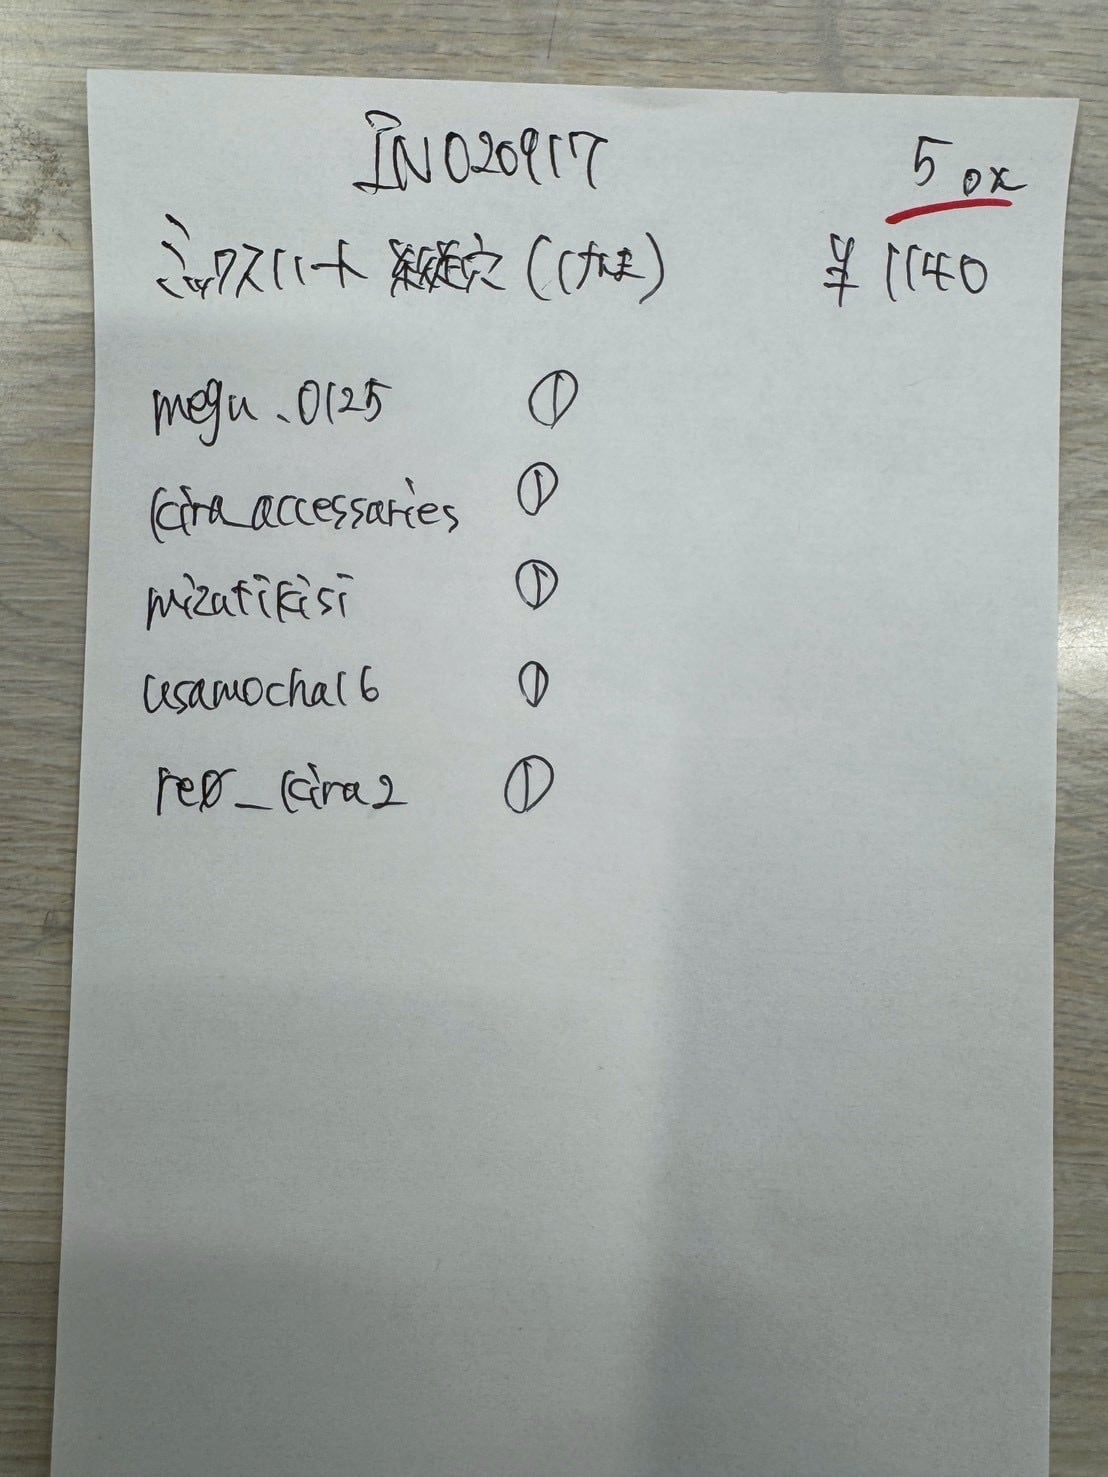 IN020917
5 ox
ミックスハート 縦穴 (けま)
¥1140
megu.0125 ①
kira_accessaries ①
mizutikisi ①
usamocha16 ①
re0_kira2 ①